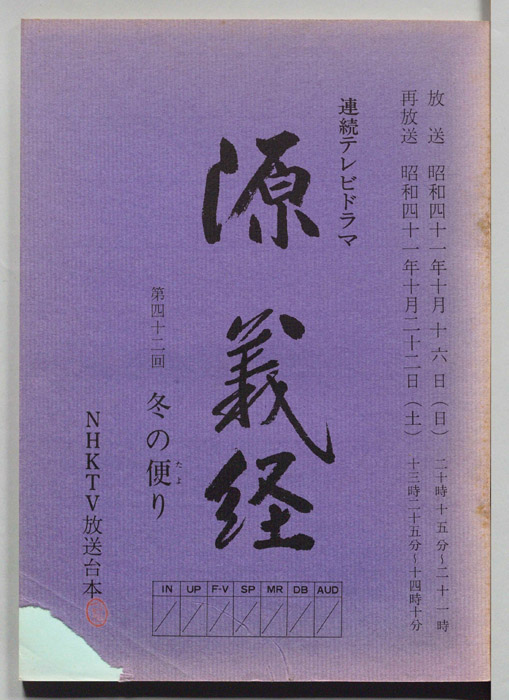 放送 昭和四十一年十月十六日（日） 二十時十五分～二十一時
再放送 昭和四十一年十月二十二日（土） 十三時二十五分～十四時十分
連続テレビドラマ
源義経
第四十二回 冬の便り
たよ
NHKTV放送台本
IN UP F-V SP MR DB AUD